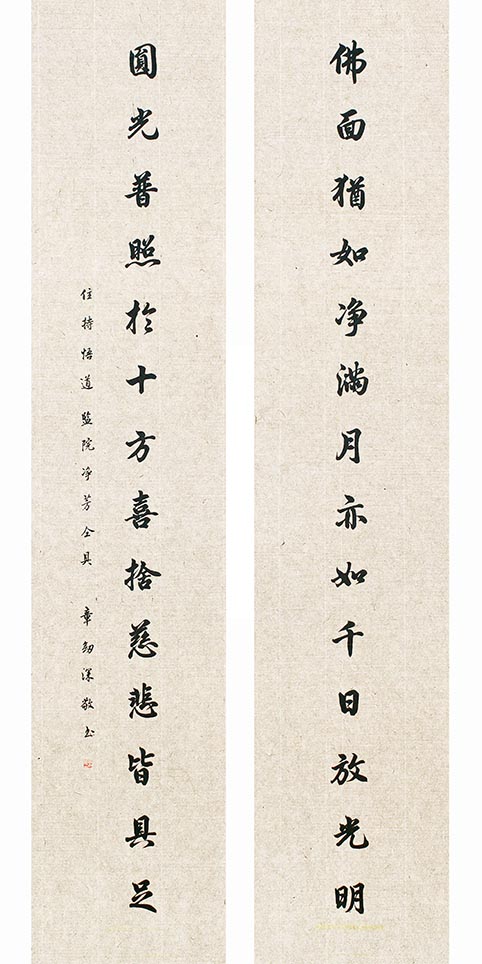 佛面猶如净滿月亦如千日放光明
圓光普照於十方喜捨慈悲皆具足
住持悟道 監院净芳仝具 章劬深敬书